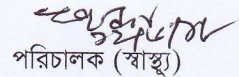 পরিচালক (স্বাস্থ্য)